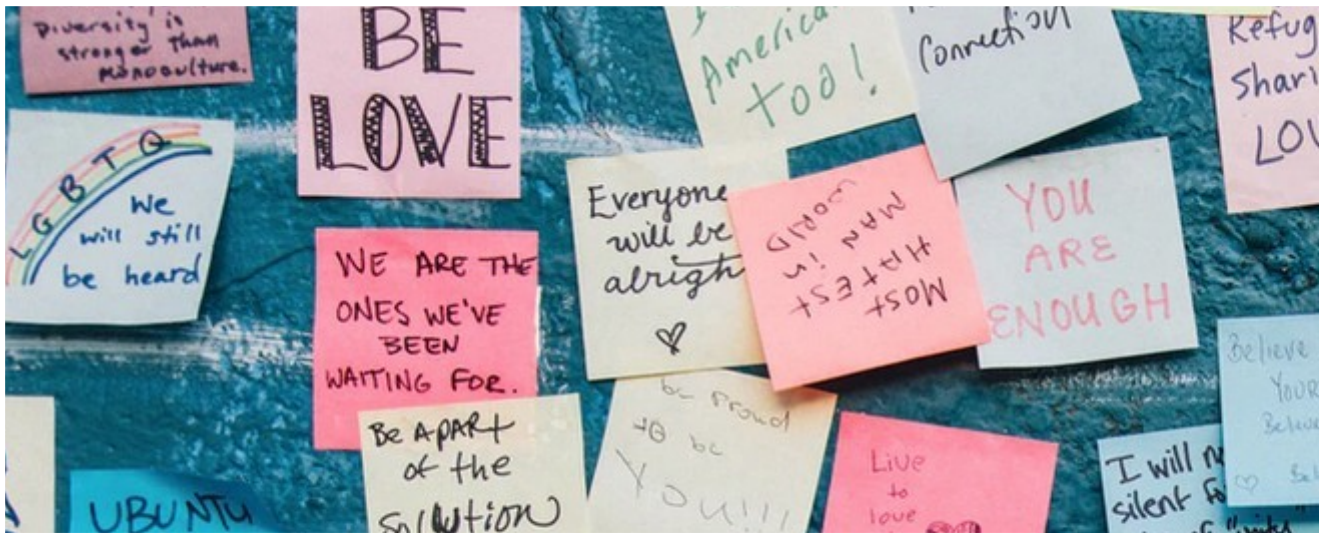 Diversity is
stronger than
monoculture.
BE
LOVE
America
too!
Connection
Refug
Shari
LOV
LGBTQ
We
will still
be heard
WE ARE THE
ONES WE'VE
BEEN
WAITING FOR.
Everyone
will be
alright
MOST
HATEST
MAN in
WORLD
YOU
ARE
ENOUGH
Believe
YOUR
Believe
Be APART
of the
Solution
be proud
to be
YOU!!!
Live
to
love
I will n
silent fo
UBUNTU